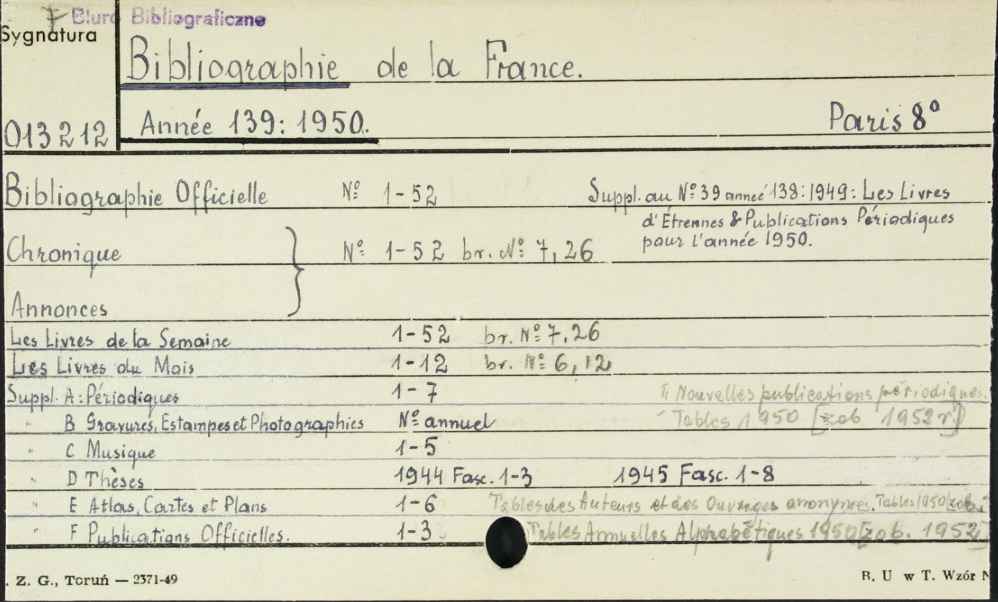 F Biuro Bibliograficzne
Sygnatura
Bibliographie de la France.
013212 Année 139: 1950. Paris 8°
Bibliographie Officielle Nº 1-52 Suppl. au Nº 39 année 138: 1949: Les Livres
d'Étrennes & Publications Périodiques
pour l'année 1950.
Chronique Nº 1-52 br. Nº 7, 26
Annonces
Les Livres de la Semaine 1-52 br. Nº 7, 26
Les Livres du Mois 1-12 br. Nº 6, 12
Suppl. A: Périodiques 1-7 Nouvelles publications périodiques.
" B Gravures, Estampes et Photographies Nº annuel Tables 1950 [zob 1952 r.]
" C Musique 1-5
" D Thèses 1944 Fasc. 1-3 1945 Fasc. 1-8
" E Atlas, Cartes et Plans 1-6 Tables des Auteurs et des Ouvrages anonymes. Tables 1950 [zob.
" F Publications Officielles. 1-3 Tables Annuelles Alphabétiques 1950 [zob. 1952]
. Z. G., Toruń — 2371-49 B. U w T. Wzór N